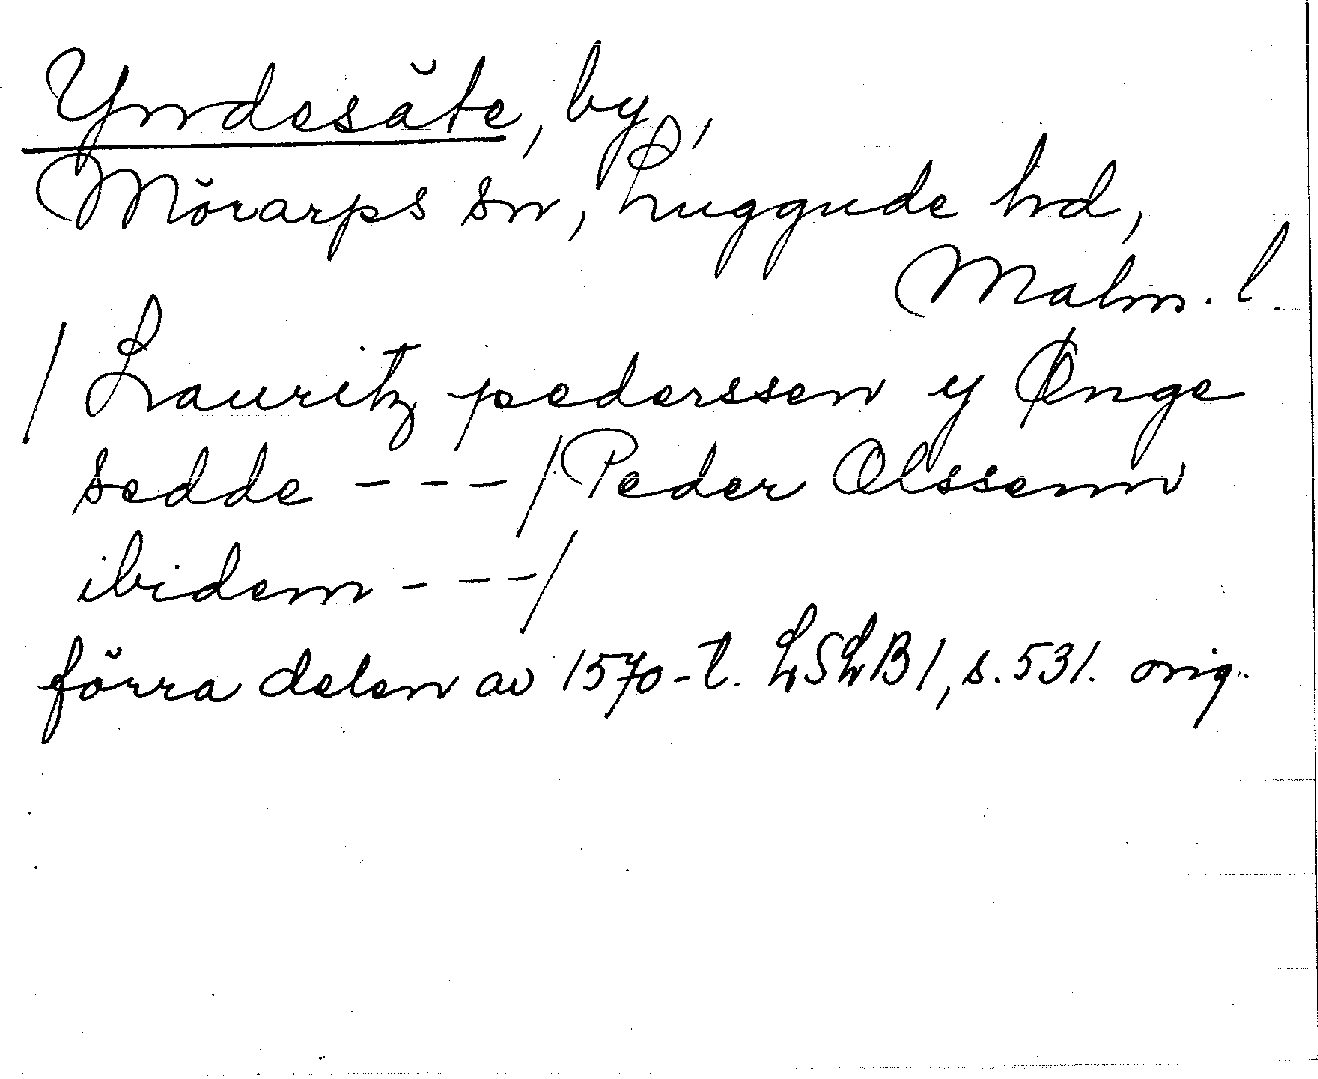 Yndesäte, by,
Mörarps sn, Luggude hd,
Malm. l.
/ Lauritz pederssen y Ønge
sedde - - - / Peder Olssenn
ibidem - - - /
förra delen av 1570-t. LSLB 1, s. 531. orig.